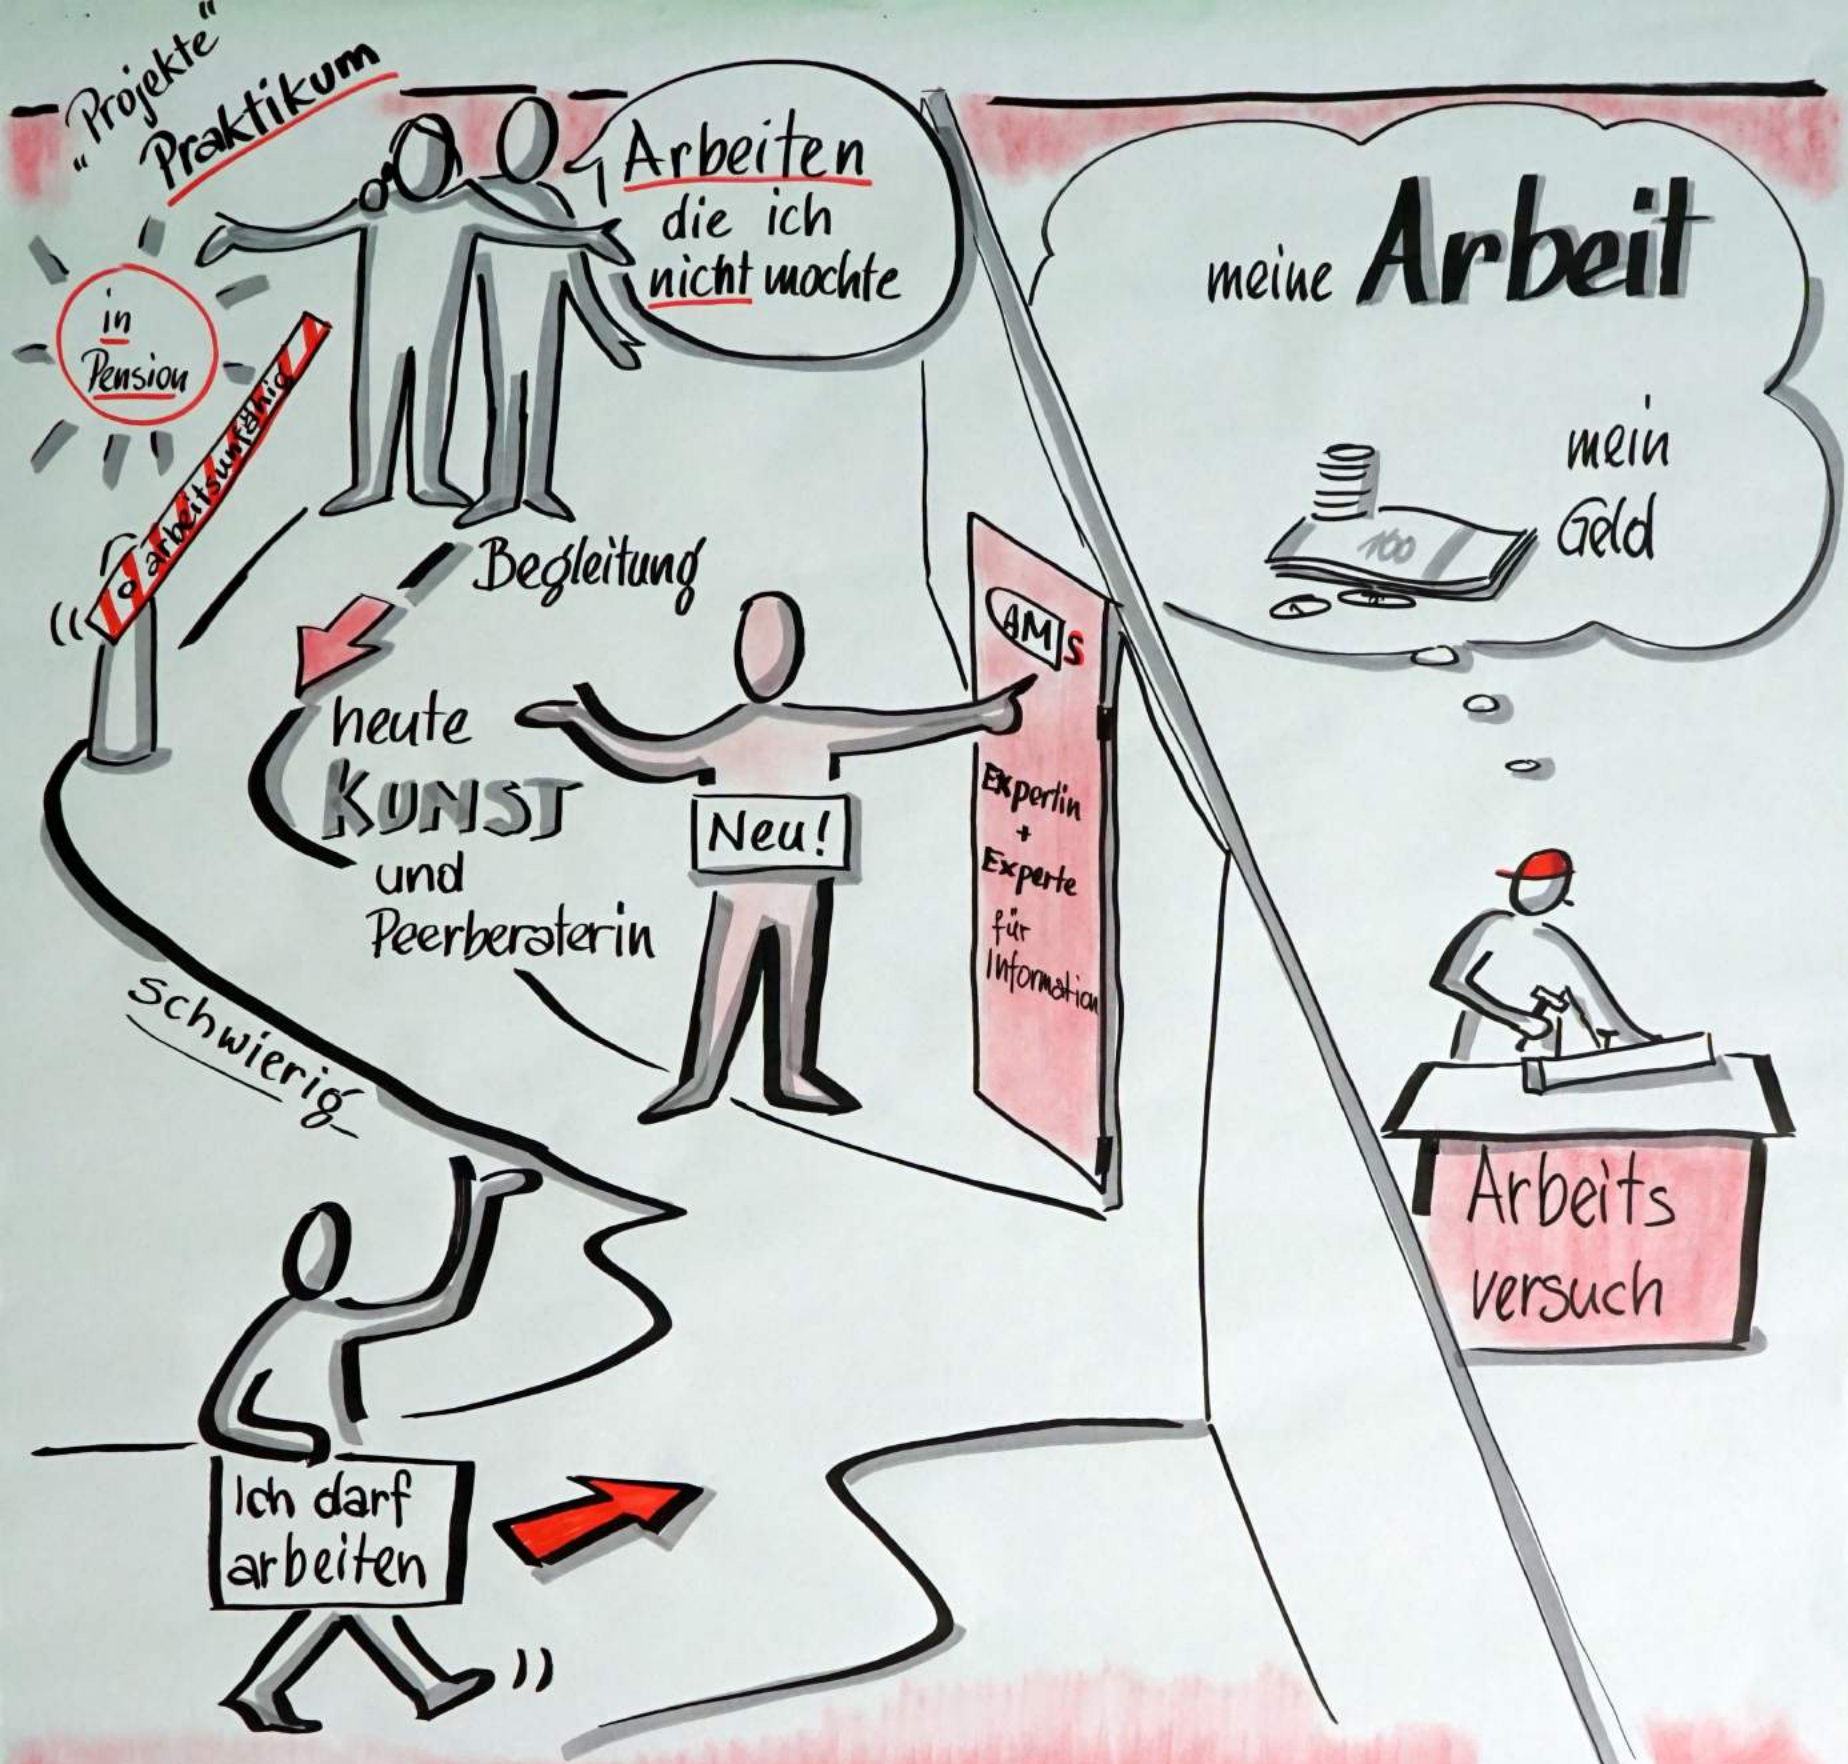 "Projekte"
Praktikum
Arbeiten
die ich
nicht mochte
in
Pension
arbeitsunfähig
Begleitung
heute
KUNST
und
Peerberaterin
schwierig
Neu!
AMS
Expertin
+
Experte
für
Information
Ich darf
arbeiten
meine Arbeit
mein
Geld
100
Arbeits
versuch